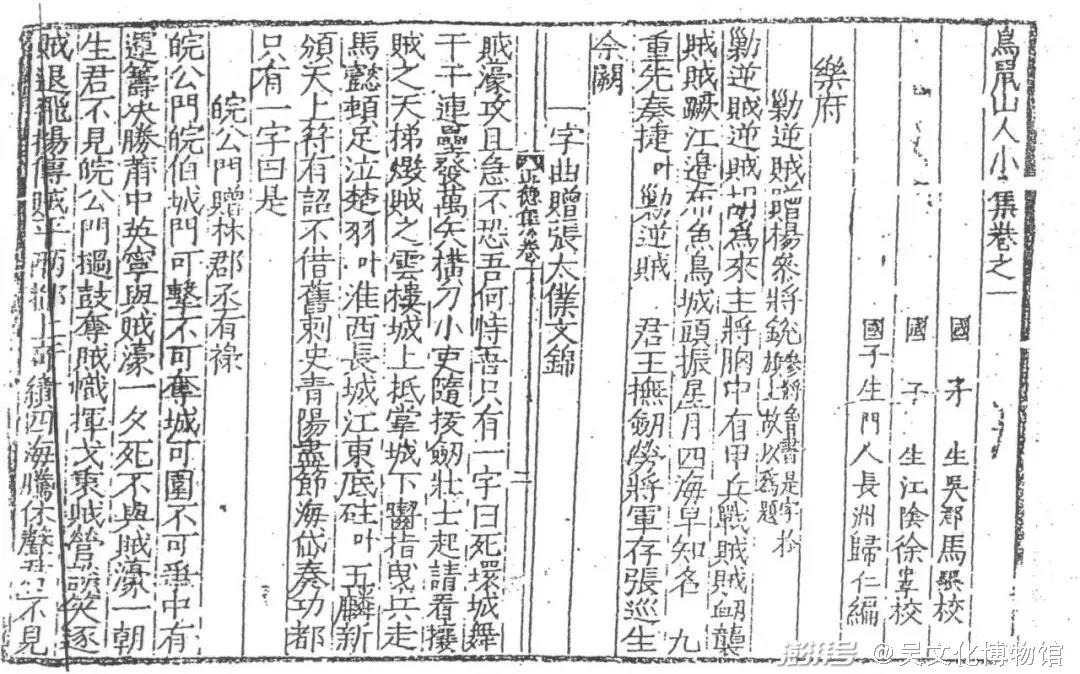 鳥鼠山人小集卷之一
國子生吳郡馬驥校
國子生江陰徐 校
國子生門人長洲歸仁編
樂府
勦逆賊贈楊參將銳參將嘗書是字於旗上故以爲題
勦逆賊逆賊胡爲來主將胸中有甲兵戰賊賊衂襲
賊賊蹶江邊布魚鳥城頭振星月四海早知名 九
重先奏捷叶勦逆賊 君王撫劒勞將軍存張巡生
佘闕
一字曲贈張太僕文錦
正德集卷一
賊濠攻且急不恐吾何恃吾只有一字曰死環城舞
干干連壘發萬矢橫刀小吏隨拔劒壯士起請看攘
賊之天梯燬賊之雲樓城上抵掌城下齧指曳兵走
馬懿頓足泣楚羽叶淮西長城江東底砫叶五麟新
頒天上符有詔不借舊刺史青陽盡節海岱奏功都
只有一字曰是
皖公門贈林郡丞有祿
皖公門皖伯城門可擊不可奪城可圍不可乖中有
運籌決勝莆中英寧與賊濠一夕死不與賊濠一朝
生君不見皖公門撾鼓奪賊幟揮戈乘賊營談笑逐
賊退飛揚傳 四海騰休聲君不見
澎湃号 @吴文化博物馆